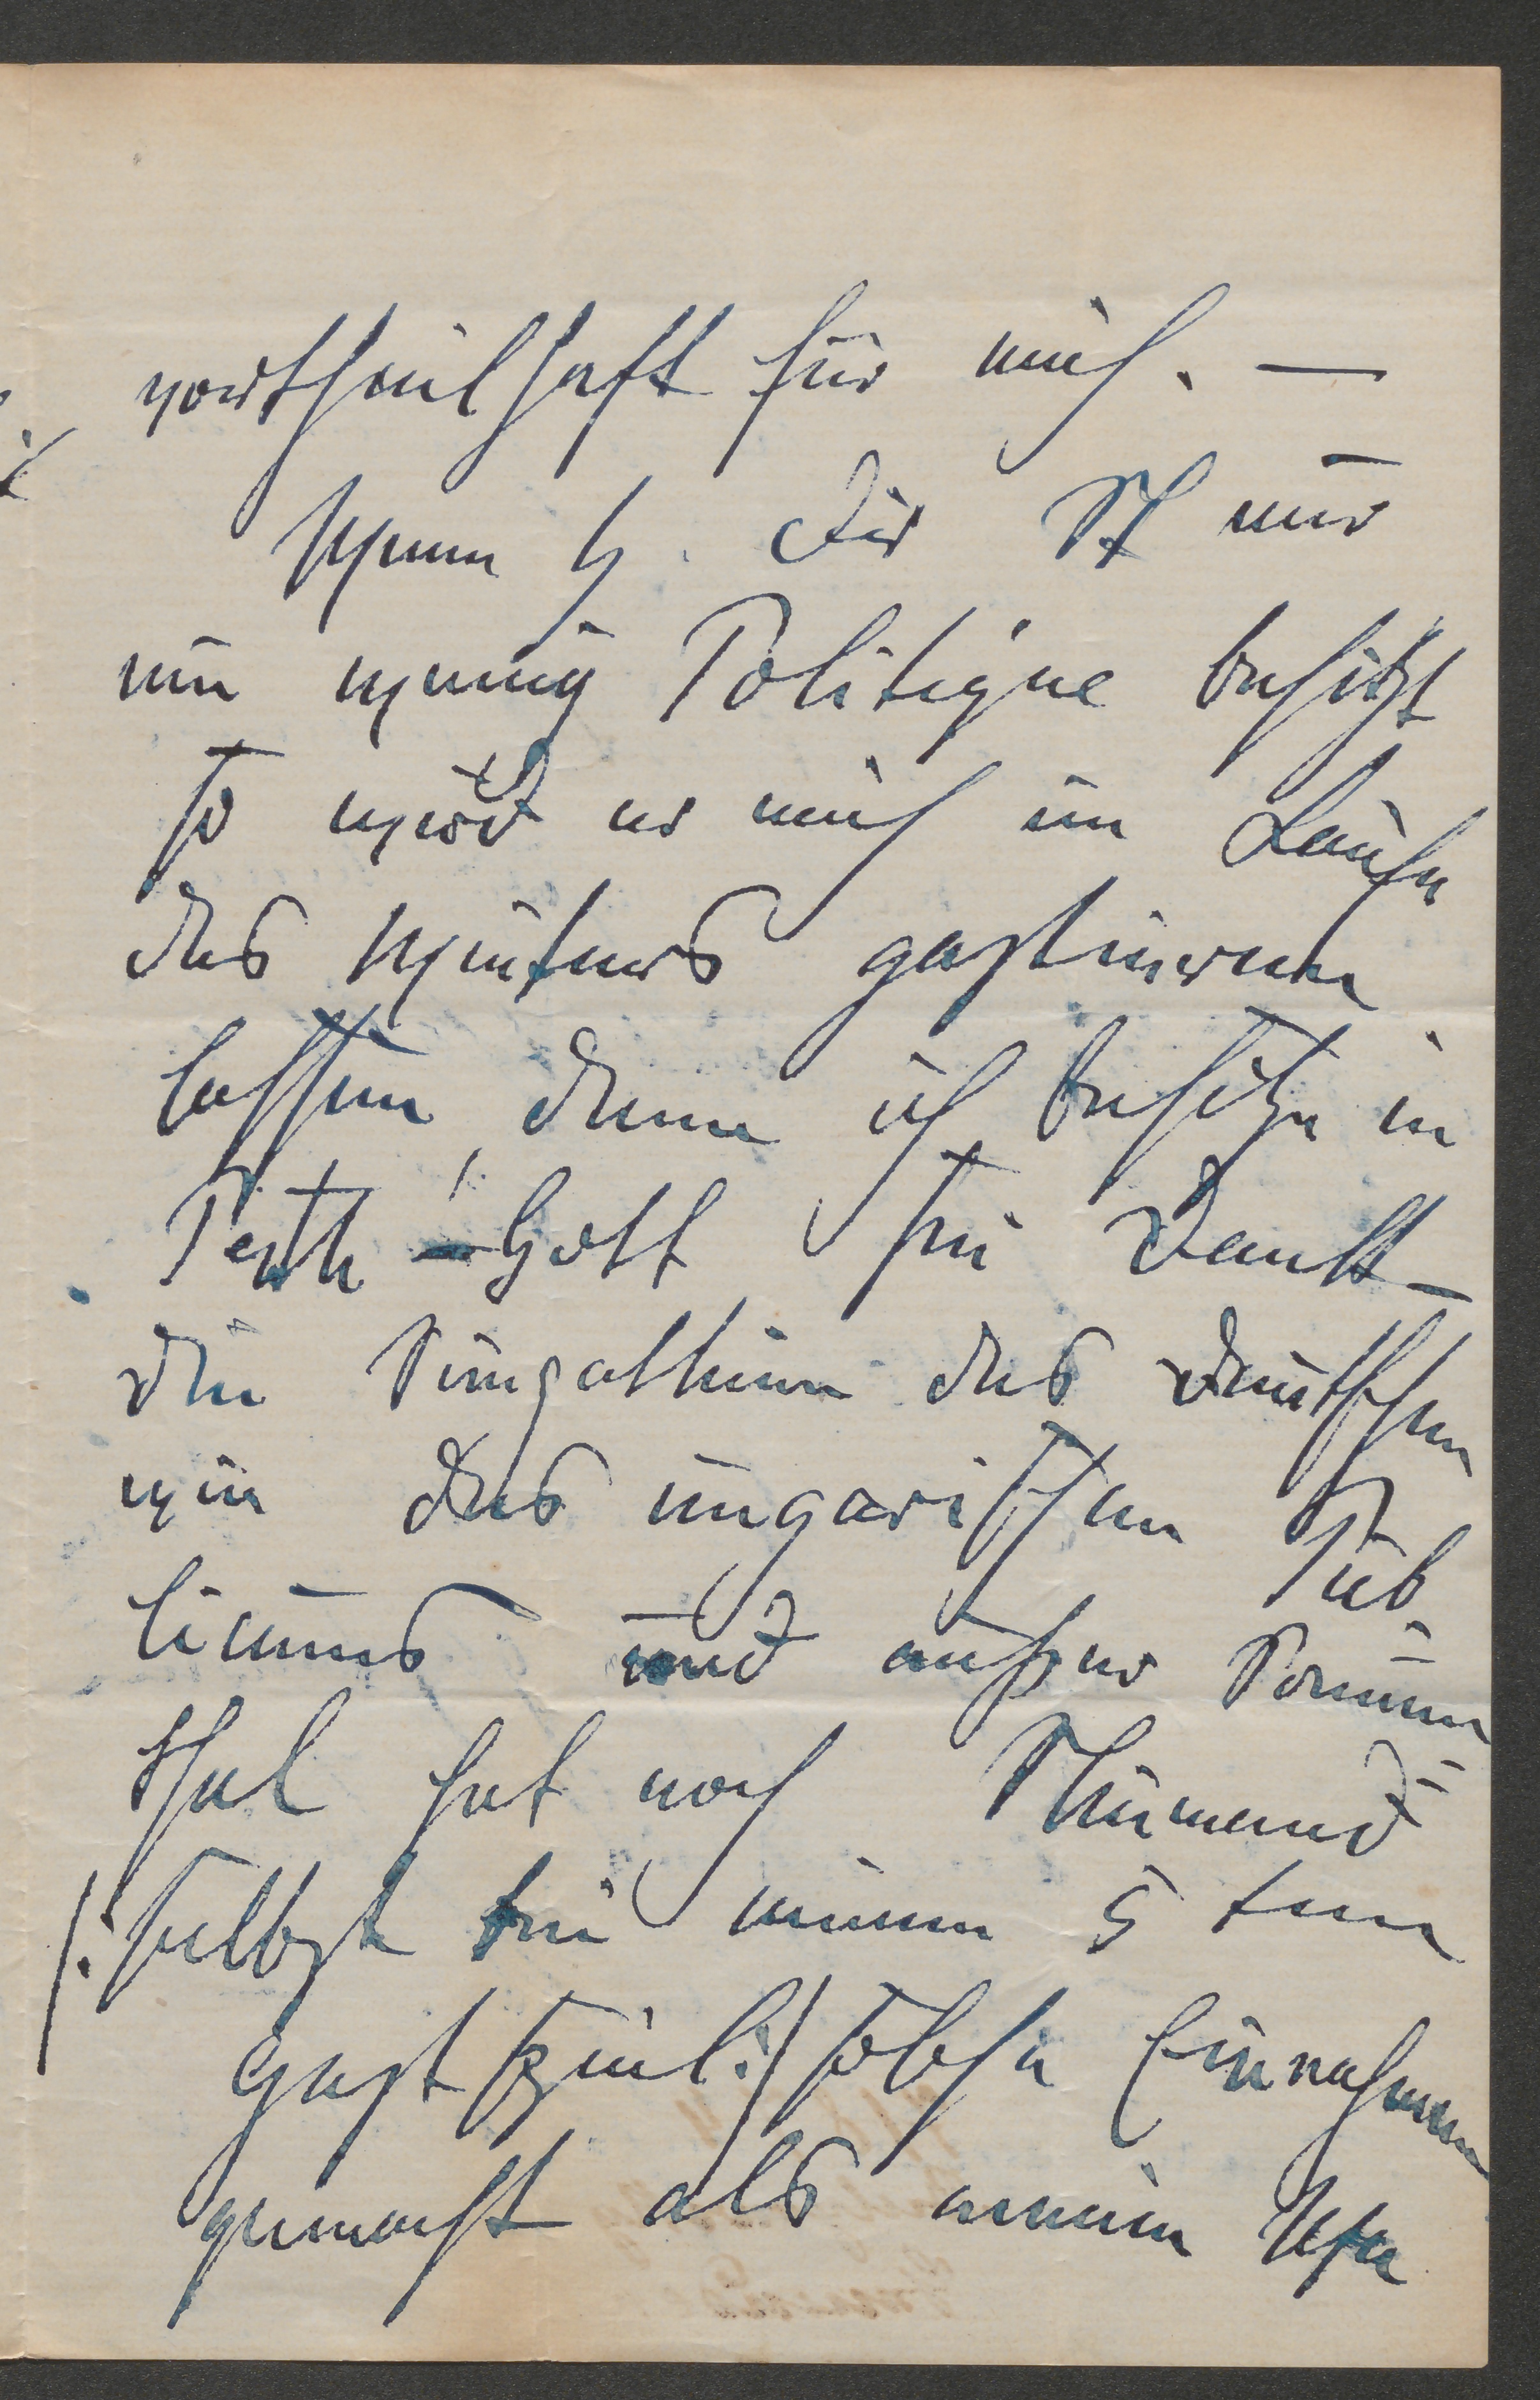 vortheilhaft für mich. —
Wenn H. Dir St nur
ein wenig Politique besitzt
so wird er mich im Laufe
des Winters gastieren
lassen, denn ich besitze in
Pesth – Gott sei Dank –
die Simpathien des deutschen
wie des ungarischen Pub
licums und außer Sonnen
thal hat noch Niemand
/: selbst bei meinem 5 ten
Gastspiel :/ solche Einnahmen
gemacht als meine